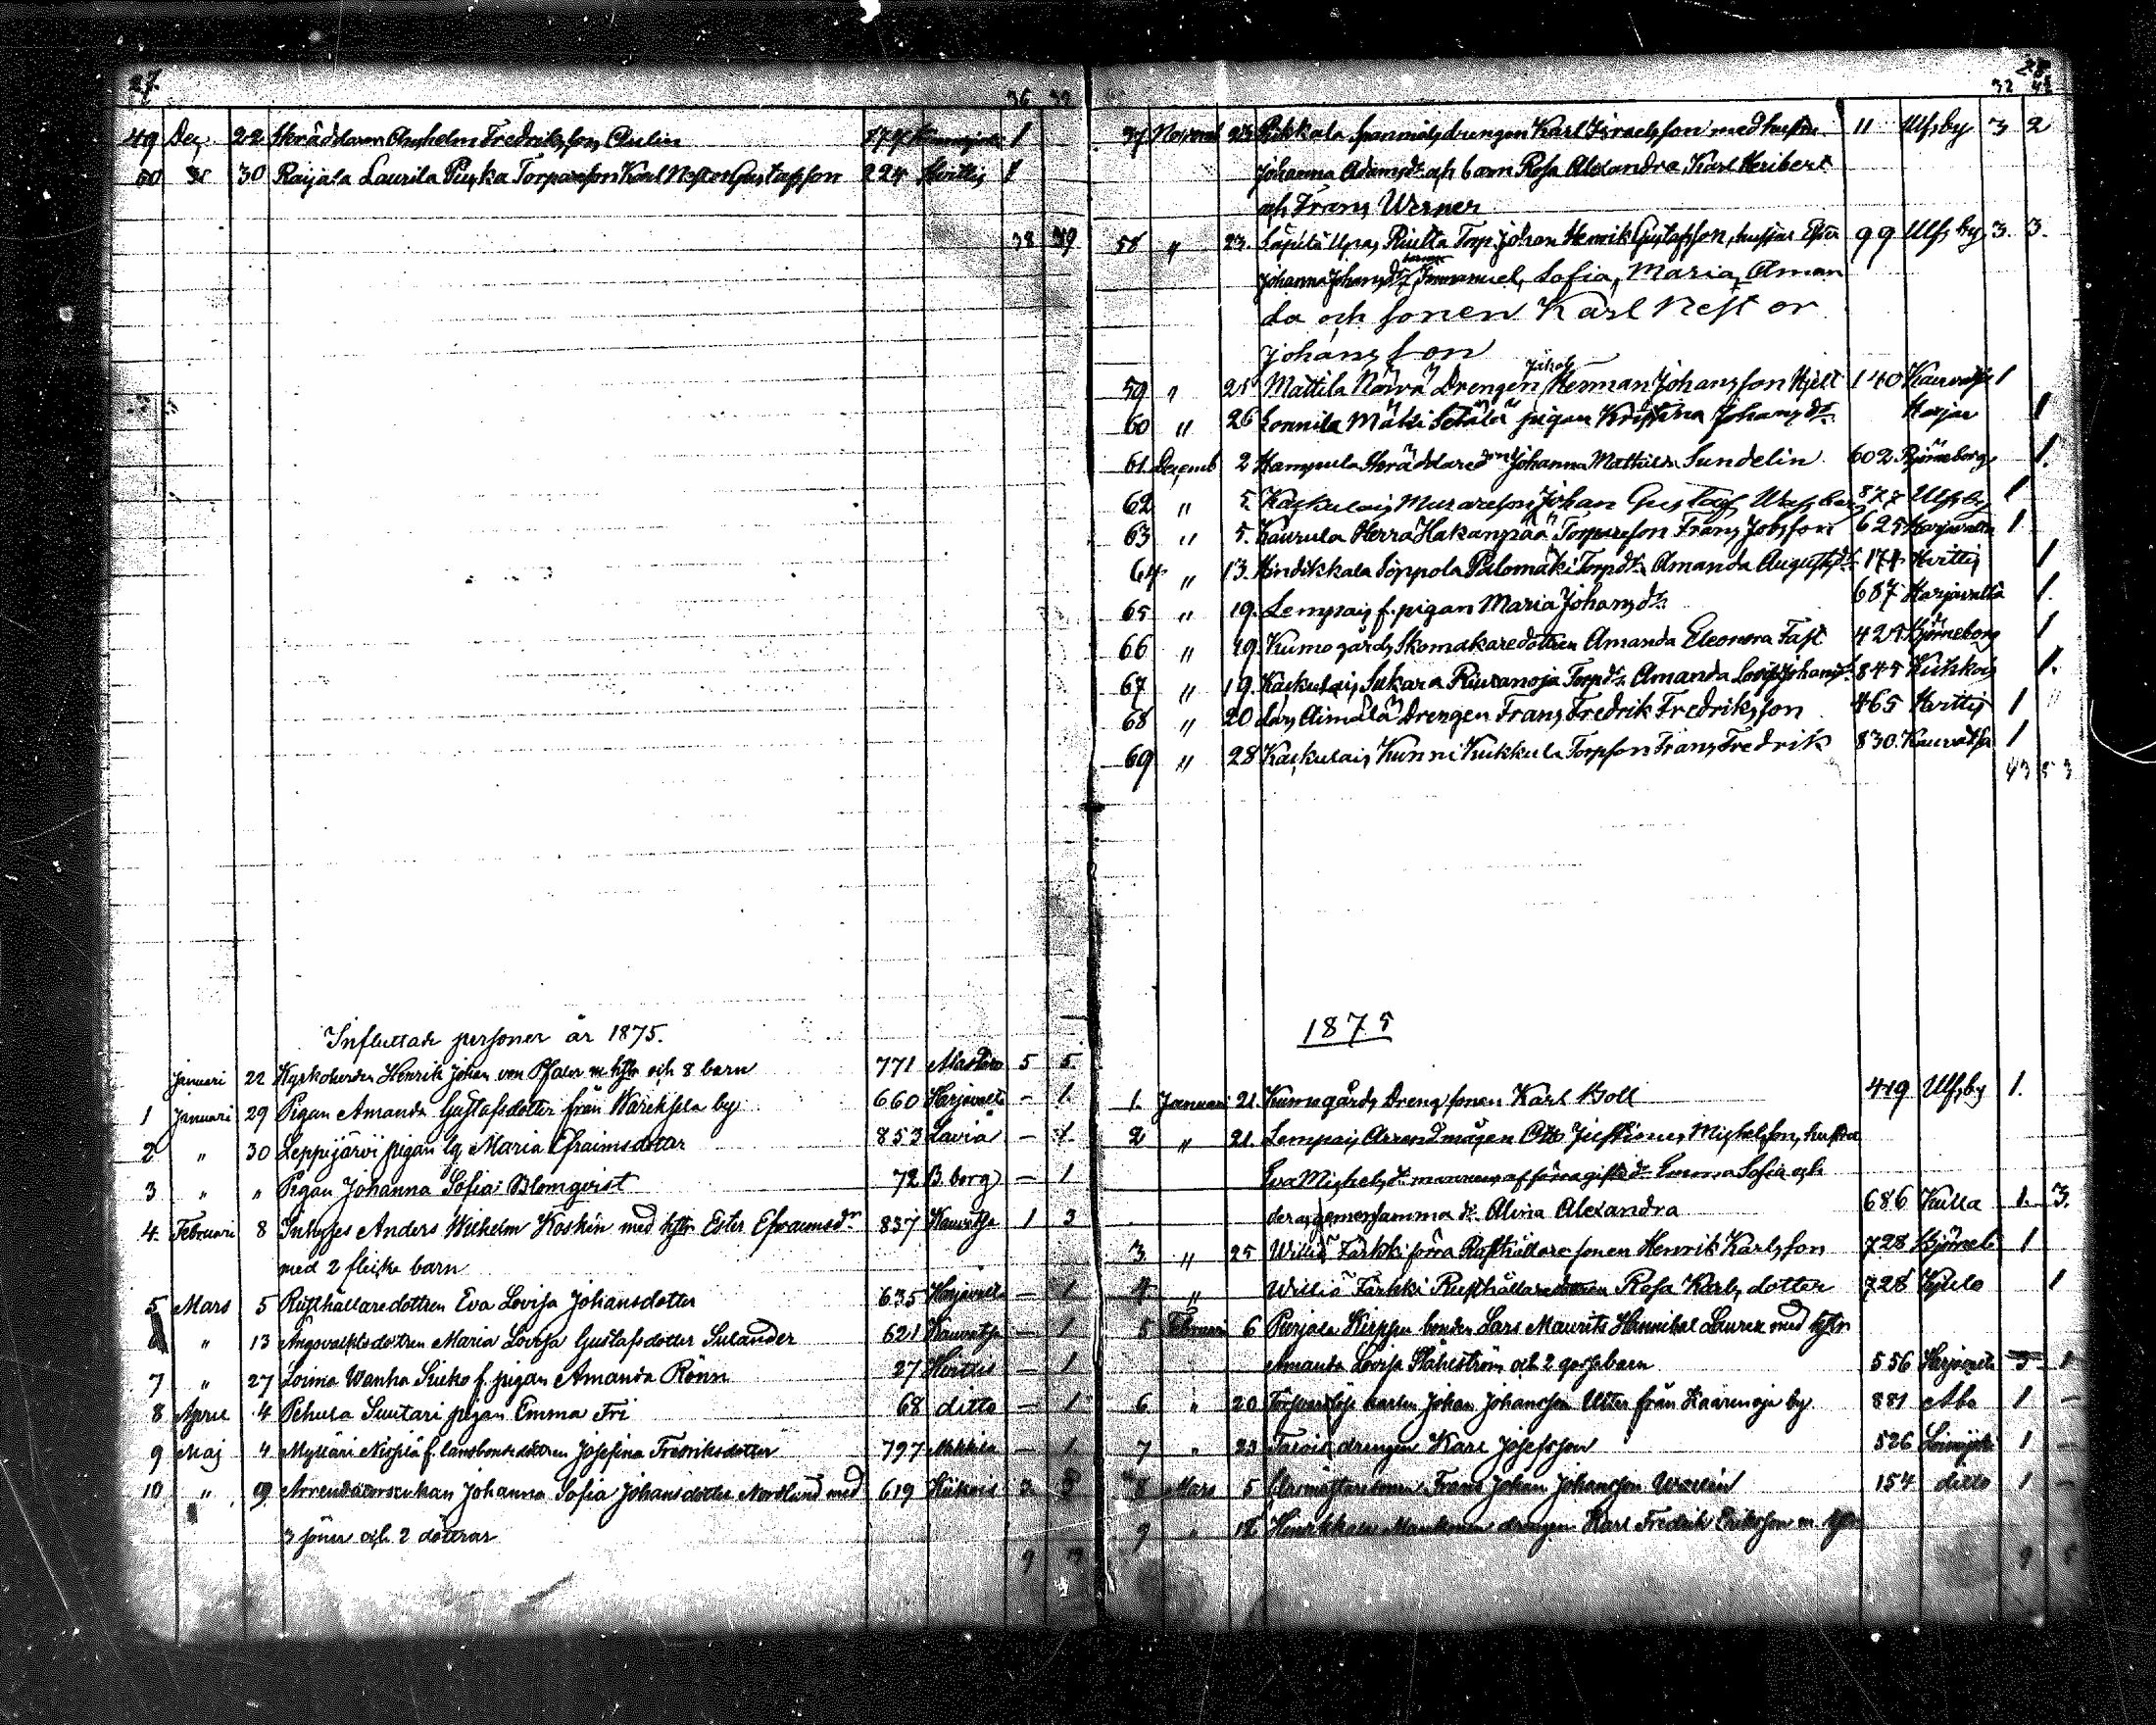 27.
36 39
49 Dec. 22 Skräddaren Anshelm Fredriksson Aulin 874 1
50 30 Raijala Laurila Puska Torpareson Karl Nestor Gustafsson 224 Hvittis 1
38 39
Influttade personer år 1875.
Januari 22 Kyrkoherden Henrik Johan von Pfaler m. hstr och 8 barn 771 5 5.
1 Januari 29 Pigan Amanda Gustafsdotter från by 660 Harjavalta – 1.
2 " 30 Leppijärvi pigan Maria Efraimsdotter 853 Lavia – 1.
3 " " Pigan Johanna Sofia Blomqvist 72 B.borg – 1
4. Februari 8 Inhyses Anders Wilhelm Koskin med hstr Ester Efraimsdr 837 Kauvatsa 1 3
med 2 flicke barn
5 Mars 5 Rusthållaredottren Eva Lovisa Johansdotter 635 Harjavalta – 1
" 13 Maria Lovisa Gustafsdotter Sulander 621 Kauvatsa – 1
7 " 27 Loima Wanha f. pigan Amanda Rönn 27 Hvittis – 1
8 April 4 Pehula Suutari pigan Emma Fri 68 ditto – 1
9 Maj 4 Mylläri f. landbondedottren Josefina Fredriksdotter 797 – 1
10 " 19 Johanna Sofia Johansdotter Nordlund med 619 Kiukais 2
3 söner och 2 döttrar
9
28
32 42
57 Novemb 23 Pikkala Spanmålsdrengen Karl Israelsson med hustru 11 Ulfsby 3 2
Johanna Adamsdr och barn Rosa Alexandra, Karl Heribert
och Frans Werner
58 " 23. Torp. Johan Henrik Gustafsson, hustru Ester 99 Ulfsby 3. 3.
Johanna Johansdr, Immanuel, Sofia, Maria, Aman
da och sonen Karl Nestor
Johansson
59 " 25 Mattila Drengen Herman Johansson Hjelt 140 Kauvatsa 1
60 " 26 Sonnila Mäki Setälä pigan Kristina Johansdr. 1
61 Decemb 2 Hampula Skräddaredon Johanna Mathilda Sundelin 602 Björneborg 1.
62 " 5. Kaskulais Murareson Johan Gustaf 877 Ulfsby 1
63 " 5. Kaurula Herra Hakanpää Torpareson Frans Jobsson 625 Harjavalta 1
64 " 13. Hindikkala Soppola Palomäki Torpdr. Amanda Augustsdr. 174 Hvittis 1
65 " 19. Lempais f. pigan Maria Johansdr. 687 Harjavalta 1.
66 " 19. Kumogårds Skomakaredottren Amanda Eleonora Fast 425 Björneborg 1
67 " 19. Kaskulais Sukara Riuranoja Torpdr. Amanda Lovisa Johansdr. 845 Kiukais 1.
68 " 20 Aimälä Drengen Frans Fredrik Fredriksson 465 Hvittis 1
69 " 28 Kaskulais Kunni Kukkula Torpson Frans Fredrik 830. Kauvatsa 1
43 53
1875
1. Januari 21. Kumogårds Drengsonen Karl Koll 419 Ulfsby 1.
2 " 21. Lempais Arrendmågen Otto Justinus Michelsson, hustru
Eva Michelsdr. mannens af förra giftet dr. Emma Sofia och
deras gemensamma dr. Alina Alexandra 686 Kiulla 1. 3.
3 " 25 Williö Tärkki förra Rusthållaresonen Henrik Karlsson 728 1
4 " Williö Tärkki Rusthållaredottren Rosa Karlsdotter 728 Kjulo 1
5 Februari 6 Purjala Kirppu bonden Lars Maurits Hannibal Lauren med hstr
Amanda Lovisa Ståhlström och 2 gossebarn 556 Harjavalta 3 1
6 " 20 karlen Johan Johansson Utter från by 881 Åbo 1 –
7 " 23 drengen Karl Josefsson 526 1 –
8 Mars 5 Frans Johan Johansson Wallin 154 ditto 1 –
9 " drengen Karl Fredrik Eriksson m. hstr
9